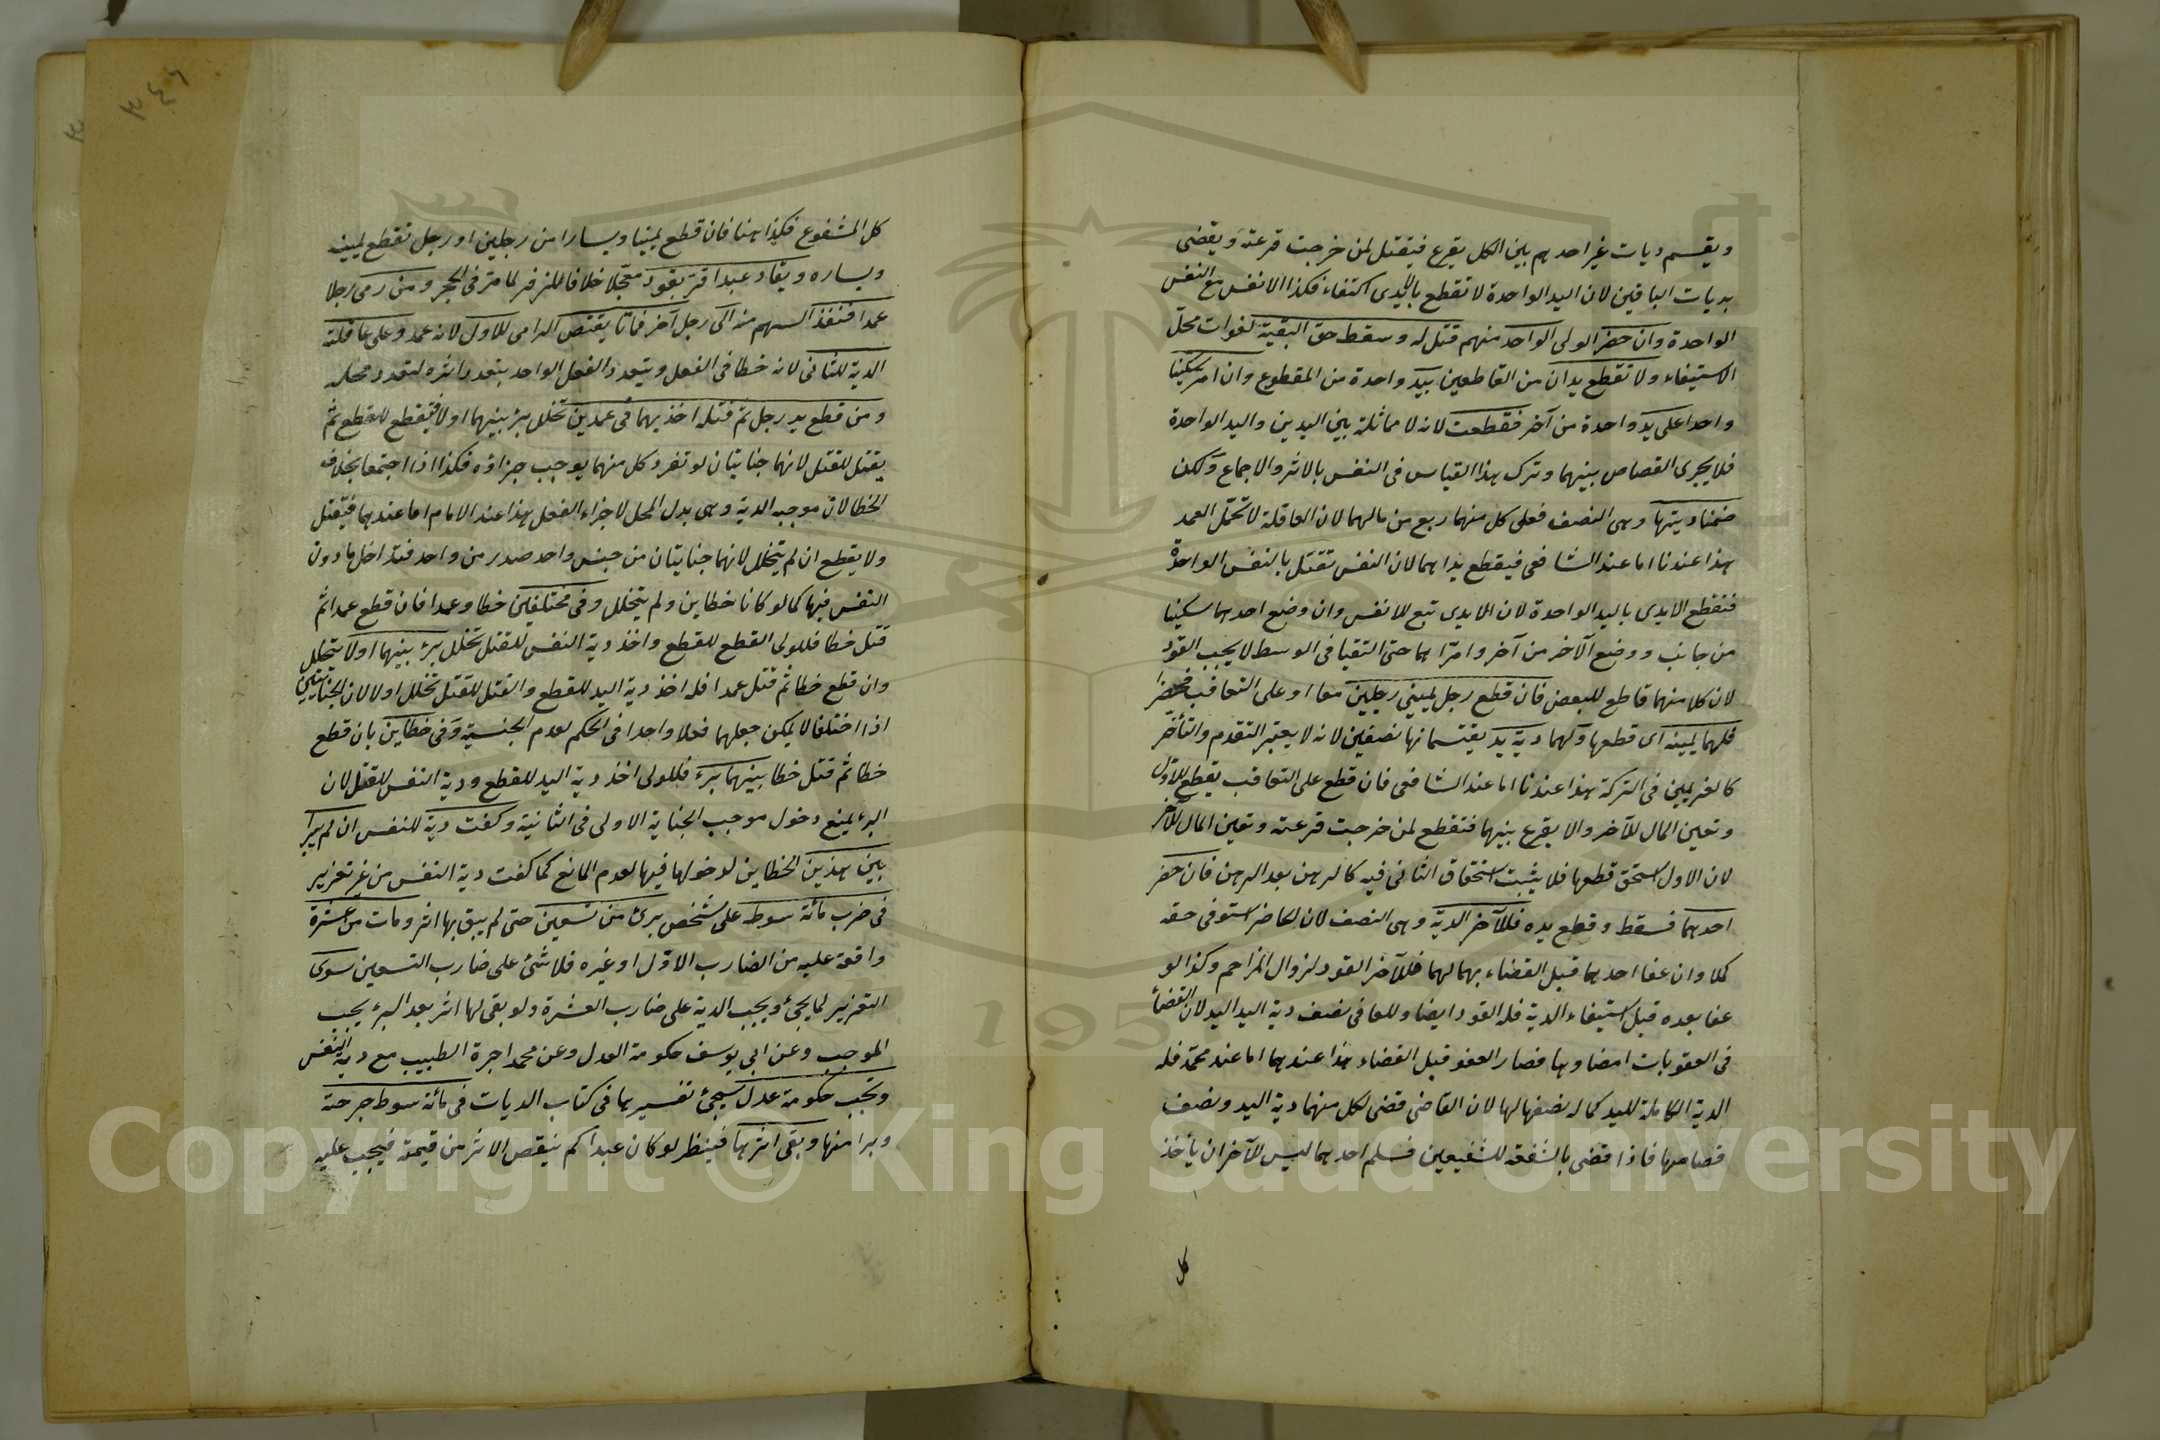 ويقسم ديات غير احدهم بين الكل يقرع فيقتل لمن خرجت قرعته ويقضى
بديات الباقين لان اليد الواحدة لا تقطع بالايدى اكتفاء فكذا الانفس مع النفس
الواحدة وان حضر الولى الواحد منهم قتل له وسقط حق البقية لفوات محل
الاستيفاء ولا تقطع يدان من القاطعين بيد واحدة من المقطوع وان امر سكينا
واحدا على يد واحدة من آخر فقطعت لانه لا مماثلة بين اليدين واليد الواحدة
فلا يجرى القصاص بينهما وترك هذا القياس فى النفس بالاثر والاجماع ولكن
ضمنا ديتها وهى النصف فعلى كل منهما ربع من مالهما لان العاقلة لا تحمل العمد
هذا عندنا اما عند الشافعى فيقطع يداهما لان النفس تقتل بالنفس الواحدة
فتقطع الايدى باليد الواحدة لان الايدى تبع للانفس وان وضع احدهما سكينا
من جانب ووضع الآخر من آخر وامرّا هما حتى التقيا فى الوسط لا يجب القود
لان كلا منهما قاطع للبعض فان قطع رجل يمينى رجلين معا او على التعاقب فحضرا
فلهما يمينه اى قطعها ولهما دية يد يقتسمانها نصفين لانه لا يعتبر التقدم والتأخر
كالغريمين فى التركة هذا عندنا اما عند الشافعى فان قطع على التعاقب يقطع للاول
وتعين المال للآخر والا يقرع بينهما فتقطع لمن خرجت قرعته وتعين المال للآخر
لان الاول استحق قطعها فلا يثبت استحقاق الثانى فيه كالرهن بعد الرهن فان حضر
احدهما فسقط وقطع يده فللآخر الدية وهى النصف لان الحاضر استوفى حقه
كملا وان عفا احدهما قبل القضاء بهما لهما فللآخر القود لزوال المزاحم وكذا لو
عفا بعده قبل استيفاء الدية فله القود ايضا وللعافى نصف دية اليد اليد لان القضاء
فى العقوبات امضاوها فصار العفو قبل القضاء هذا عندهما اما عند محمد فله
الدية الكاملة لليد كما له نصفها لها لان القاضى قضى لكل منهما دية اليد ونصف
قصاصها فاذا قضى بالشفعة للشفيعين فسلم احدهما ليس للآخر ان يأخذ
كل
٣٤٦
كل المشفوع فكذا هنا فان قطع يمينا ويسارا من رجلين او رجل تقطع يمينه
ويساره ويقاد عبد اقر بقود معجلا خلافا للزفر لما مر فى الحجر ومن رمى رجلا
عمدا فنفذ السهم منه الى رجل آخر فماتا يقتص الرامى للاول لانه عمد وعلى عاقلته
الدية للثانى لانه خطا فى الفعل ويتعدد الفعل الواحد بتعدد اثره لتعدد محله
ومن قطع يد رجل ثم قتله اخذ بهما فى عمدين تخلل برء بينهما او لا فيقطع للقطع ثم
يقتل للقتل لانهما جنايتان لو تفرد كل منهما يوجب جزاؤه فكذا اذا اجتمعا بخلاف
الخطا لان موجبه الدية وهى بدل المحل لا جزاء الفعل هذا عند الامام اما عندهما فيقتل
ولا يقطع ان لم يتخلل لانهما جنايتان من جنس واحد صدر من واحد فتداخل ما دون
النفس فيها كما لو كانا خطاين ولم يتخلل وفى مختلفين خطا وعمدا فان قطع عمدا ثم
قتل خطا فللولى القطع للقطع واخذ دية النفس للقتل تخلل برء بينهما او لا يتخلل
وان قطع خطا ثم قتل عمدا فله اخذ دية اليد للقطع والقتل للقتل تخلل او لا لان الجنايتين
اذا اختلفا لا يمكن جعلهما فعلا واحدا فى الحكم لعدم الجنسية وفى خطاين بان قطع
خطا ثم قتل خطا بينهما برء فللولى اخذ دية اليد للقطع ودية النفس للقتل لان
البرء يمنع دخول موجب الجناية الاولى فى الثانية وكفت دية للنفس ان لم يبرا
بين هذين الخطاين لدخولها فيها لعدم المانع كما كفت دية النفس من غير تعزير
فى ضرب مائة سوط على شخص برئ من تسعين حتى لم يبق بها اثر ومات من عشرة
واقعة عليه من الضارب الاول او غيره فلا شئ على ضارب التسعين سوى
التعزير لما يجئ ويجب الدية على ضارب العشرة ولو بقى لها اثر بعد البرء يجب
الموجب وعن ابى يوسف حكومة العدل وعن محمد اجرة الطبيب مع دية النفس
وتجب حكومة عدل سيجئ تفسيرها فى كتاب الديات فى مائة سوط جرحته
وبرا منها وبقى اثرها فينظر لو كان عبدا كم ينقص الاثر من قيمته فيجب عليه
Copyright © King Saud University